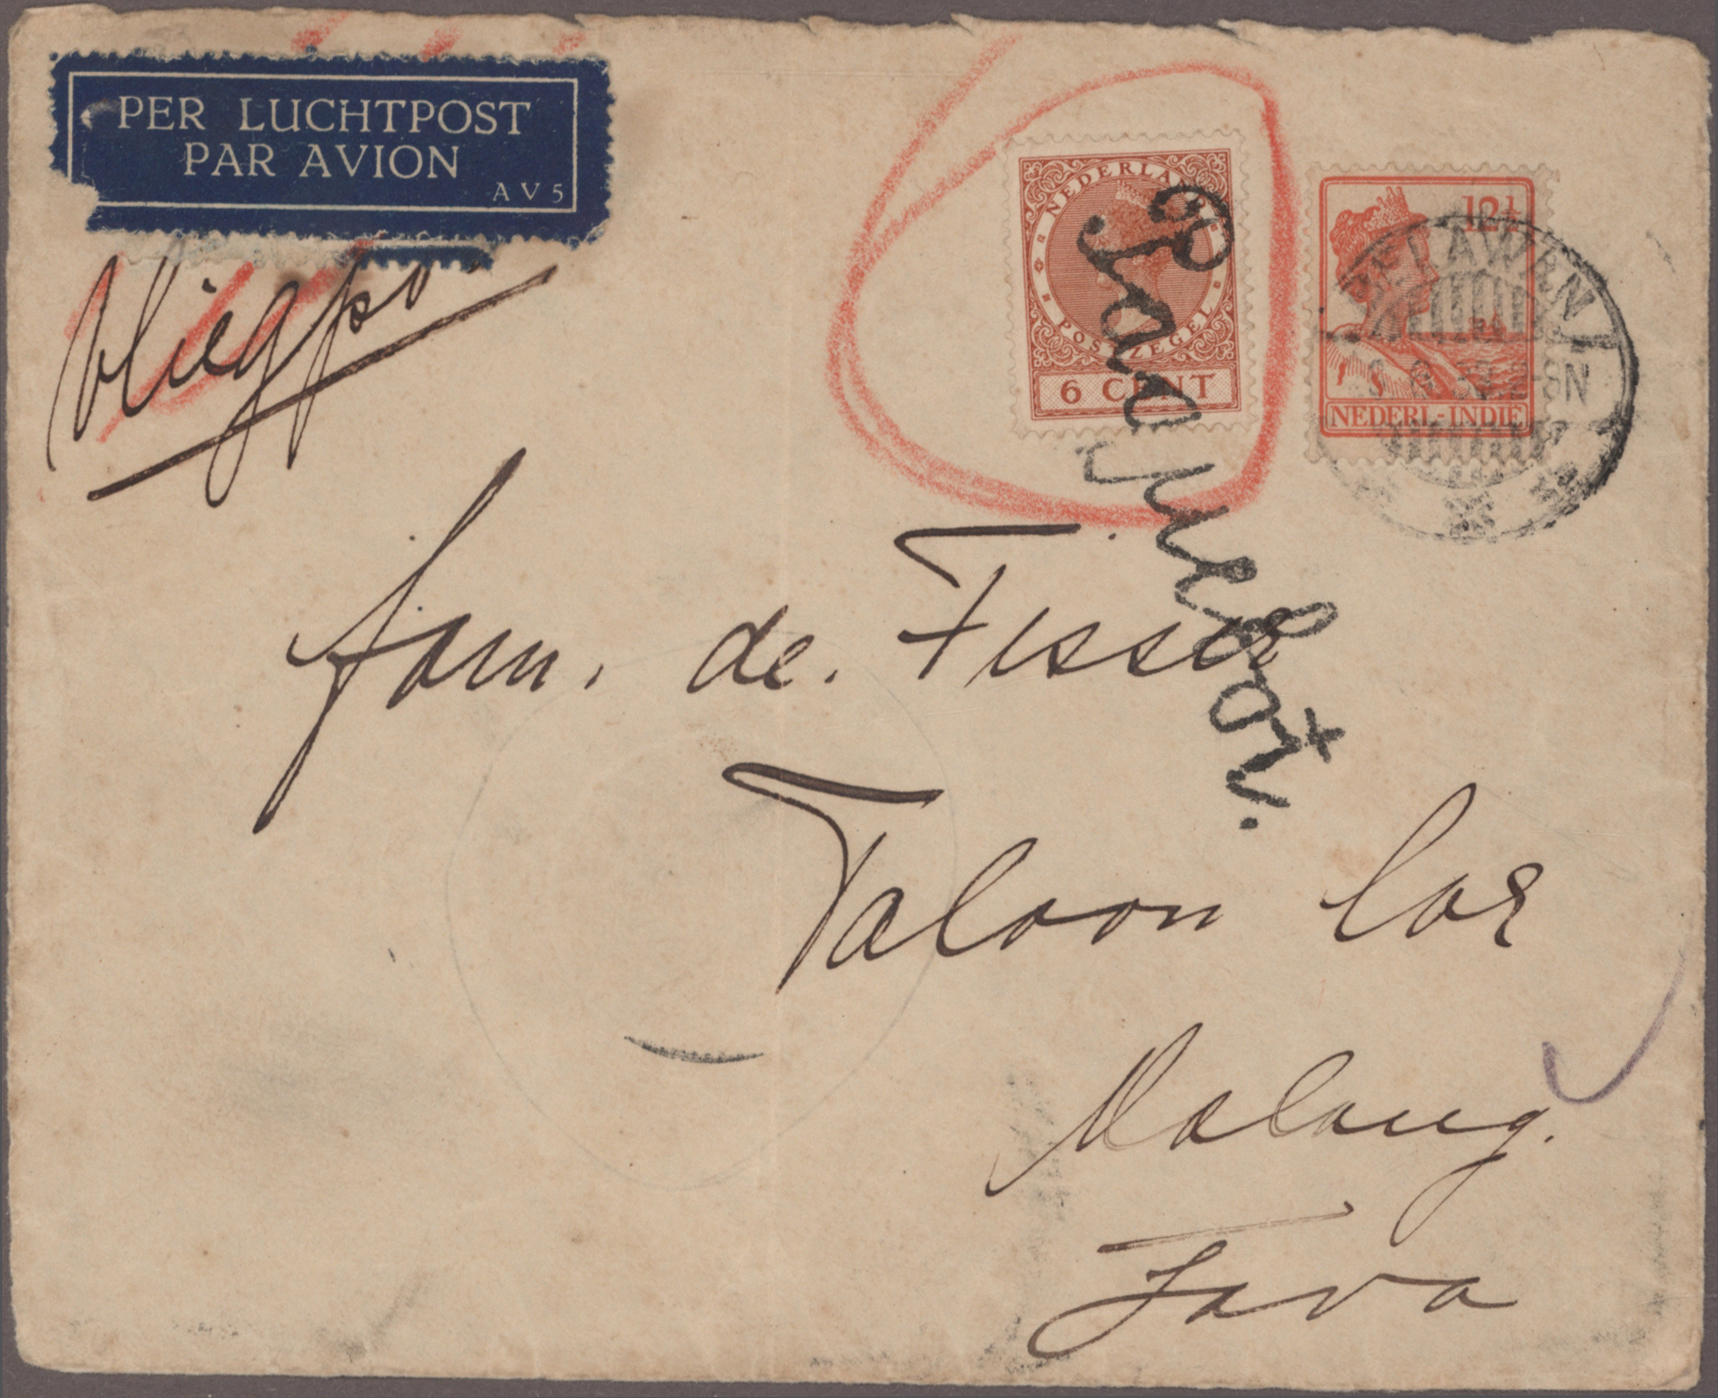 PER LUCHTPOST
PAR AVION
AV5
Vliegpo
NEDERLAND
POSTZEGEL
6 CENT
12½
NEDERL-INDIE
BELAWAN
Paquebot.
fam. de. Fisser
Taloon Lor
Malang.
Java